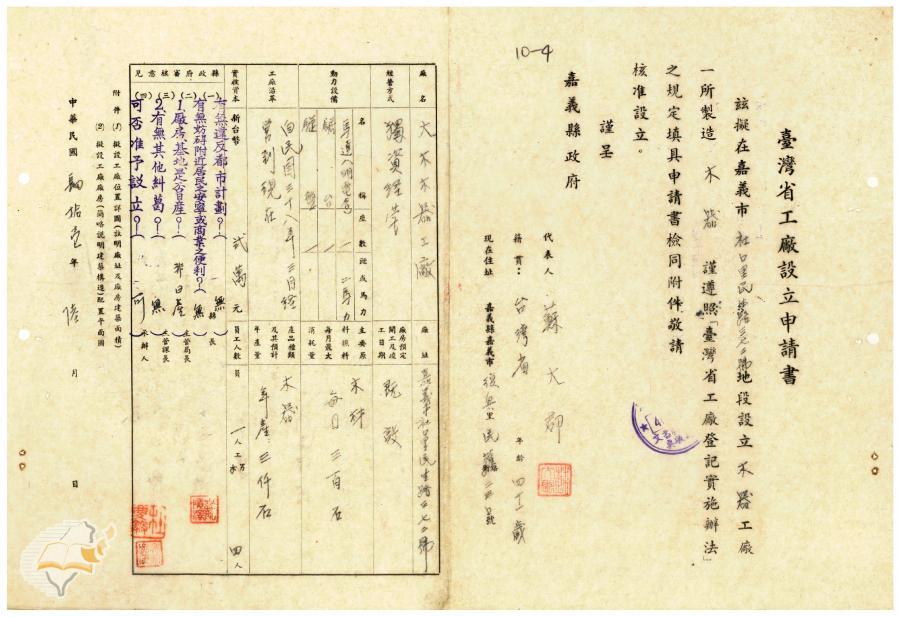 臺灣省工廠設立申請書
茲擬在嘉義市 社口里民生路二七二號地段設立 木器 工廠
一所製造 木器 謹遵照「臺灣省工廠登記實施辦法」
之規定填具申請書檢同附件敬請
核准設立。
謹呈
嘉義縣政府
代表人 蘇大
籍貫: 台灣省 年齡 四 歲
現在住址 嘉義縣嘉義市復興里民 號
10-4
廠名 大木木器工廠
廠址 嘉義市社口里民生路二七二號
經營方式 獨資經營
廠房預定開工及竣工日期 既設
動力設備 名稱 座數 匹或馬力
馬達 二馬力
主要原料燃料每月最大消耗量 木材 每日三百石
工廠沿革 自民國三十八年三月經營到現在
產品種類及其預計年產量 木器 年產三仟石
實收資本 新台幣 貳萬元
員工人數 員 一人 工 四人
縣政府審核意見
(一)有無違反都市計劃?( 無 縣長
(二)有無妨碍附近居民之安寧或商業之便利?( 無
1.廠房、基地是否日產?( 非日產 主管局長
(三)2.有無其他糾葛?( 無 主管課長
(四)可否准予設立?( 可 承辦人
附件(1)擬設工廠位置詳圖(註明廠址及廠房建築面積)
(2)擬設工廠廠房(簡略説明建築構造)配置平面圖
中華民國 年 陸 月 日